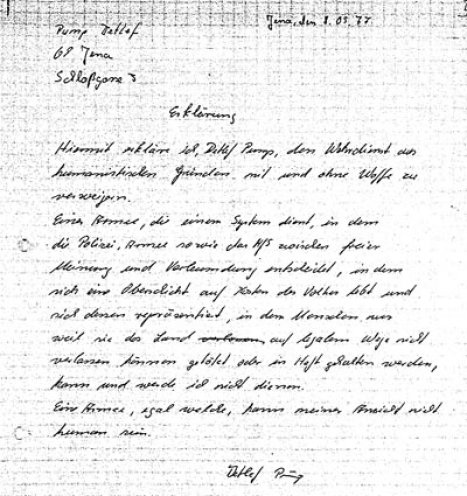 Jena, den 8.09.77
Pump Detlef
69 Jena
Schloßgasse 3
Erklärung
Hiermit erkläre ich, Detlef Pump, den Wehrdienst aus
humanistischen Gründen mit und ohne Waffe zu
verweigern.
Einer Armee, die einem System dient, in dem
die Polizei, Armee sowie das MfS zwischen freier
Meinung und Verleumdung entscheidet, in dem
sich eine Oberschicht auf Kosten des Volkes lebt und
sich dessen repräsentiert, in dem Menschen nur
weil sie das Land verlassen auf legalem Wege nicht
verlassen können getötet oder in Haft gehalten werden,
kann und werde ich nicht dienen.
Eine Armee, egal welche, kann meiner Ansicht nicht
human sein.
Detlef Pump